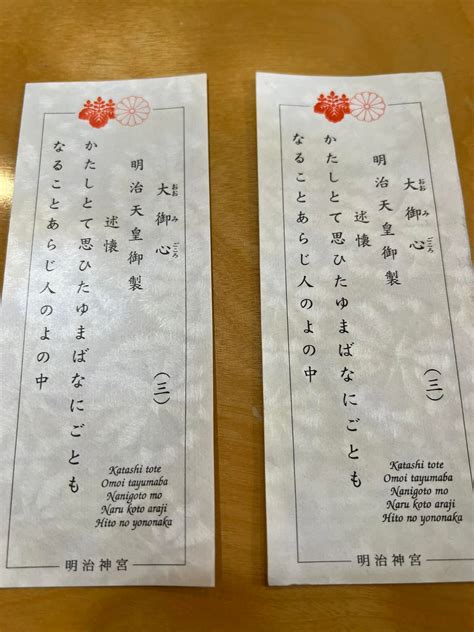 大御心
おおみごころ
(三)
明治天皇御製
述懐
かたしとて思ひたゆまばなにごとも
なることあらじ人のよの中
Katashi tote
Omoi tayumaba
Nanigoto mo
Naru koto araji
Hito no yononaka
明治神宮
大御心
おおみごころ
(三)
明治天皇御製
述懐
かたしとて思ひたゆまばなにごとも
なることあらじ人のよの中
Katashi tote
Omoi tayumaba
Nanigoto mo
Naru koto araji
Hito no yononaka
明治神宮